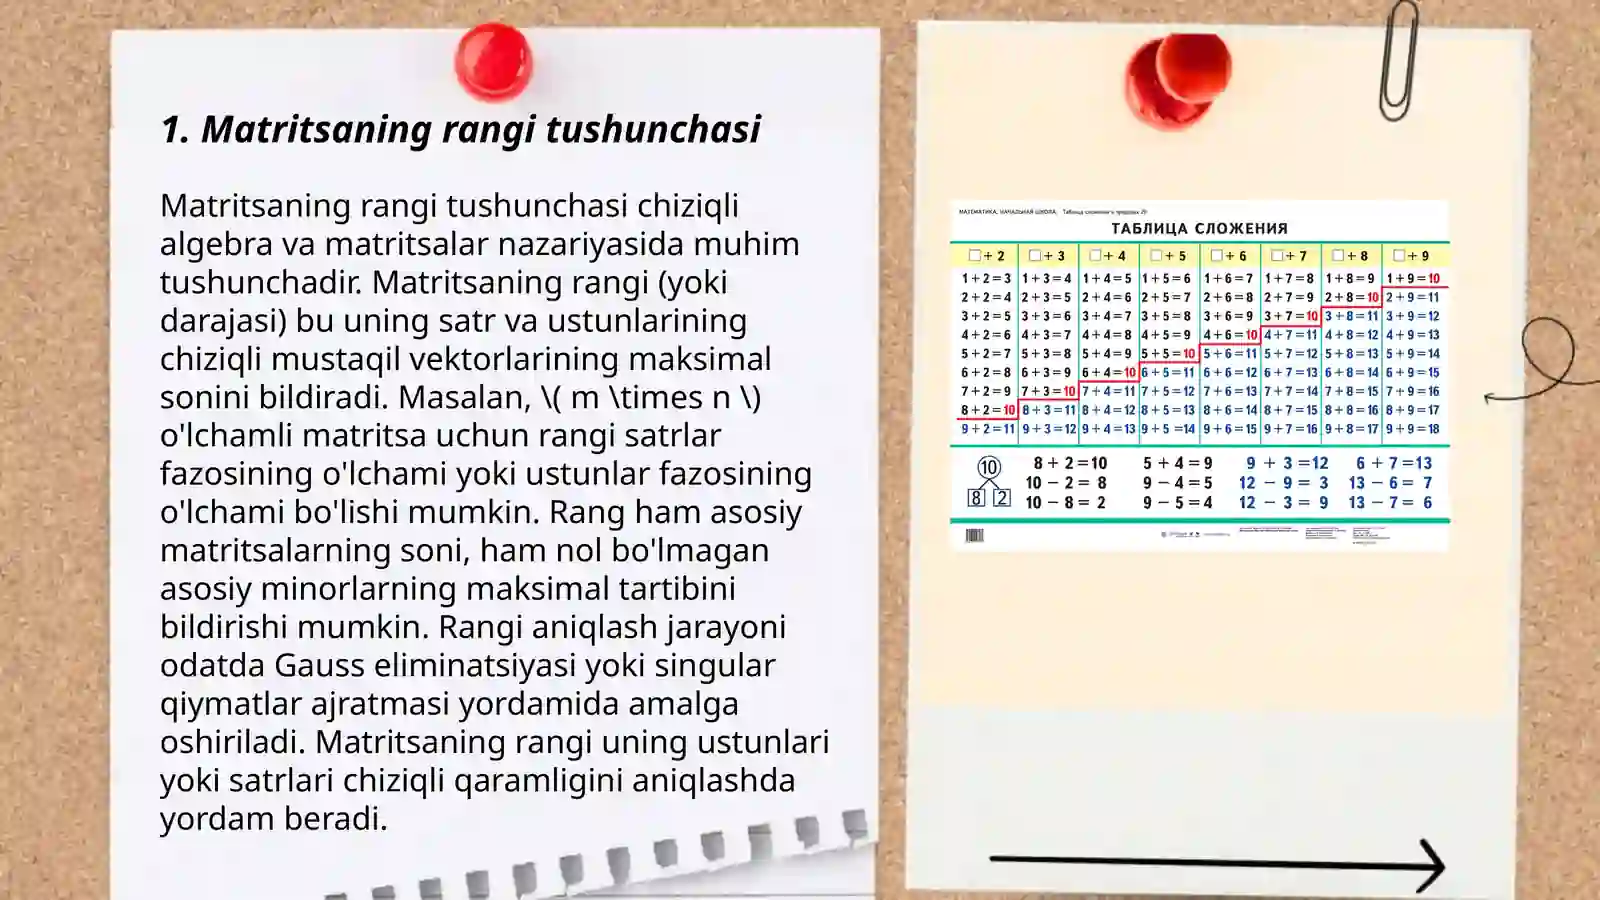 1. Matritsaning rangi tushunchasi
Matritsaning rangi tushunchasi chiziqli
algebra va matritsalar nazariyasida muhim
tushunchadir. Matritsaning rangi (yoki
darajasi) bu uning satr va ustunlarining
chiziqli mustaqil vektorlarining maksimal
sonini bildiradi. Masalan, \( m \times n \)
o'lchamli matritsa uchun rangi satrlar
fazosining o'lchami yoki ustunlar fazosining
o'lchami bo'lishi mumkin. Rang ham asosiy
matritsalarning soni, ham nol bo'lmagan
asosiy minorlarning maksimal tartibini
bildirishi mumkin. Rangi aniqlash jarayoni
odatda Gauss eliminatsiyasi yoki singular
qiymatlar ajratmasi yordamida amalga
oshiriladi. Matritsaning rangi uning ustunlari
yoki satrlari chiziqli qaramligini aniqlashda
yordam beradi.
МАТЕМАТИКА. НАЧАЛЬНАЯ ШКОЛА. Таблица сложения в пределах 20
ТАБЛИЦА СЛОЖЕНИЯ
□+2 □+3 □+4 □+5 □+6 □+7 □+8 □+9
1+2=3 1+3=4 1+4=5 1+5=6 1+6=7 1+7=8 1+8=9 1+9=10
2+2=4 2+3=5 2+4=6 2+5=7 2+6=8 2+7=9 2+8=10 2+9=11
3+2=5 3+3=6 3+4=7 3+5=8 3+6=9 3+7=10 3+8=11 3+9=12
4+2=6 4+3=7 4+4=8 4+5=9 4+6=10 4+7=11 4+8=12 4+9=13
5+2=7 5+3=8 5+4=9 5+5=10 5+6=11 5+7=12 5+8=13 5+9=14
6+2=8 6+3=9 6+4=10 6+5=11 6+6=12 6+7=13 6+8=14 6+9=15
7+2=9 7+3=10 7+4=11 7+5=12 7+6=13 7+7=14 7+8=15 7+9=16
8+2=10 8+3=11 8+4=12 8+5=13 8+6=14 8+7=15 8+8=16 8+9=17
9+2=11 9+3=12 9+4=13 9+5=14 9+6=15 9+7=16 9+8=17 9+9=18
10 8+2=10 5+4=9 9+3=12 6+7=13
8 2 10−2=8 9−4=5 12−9=3 13−6=7
10−8=2 9−5=4 12−3=9 13−7=6